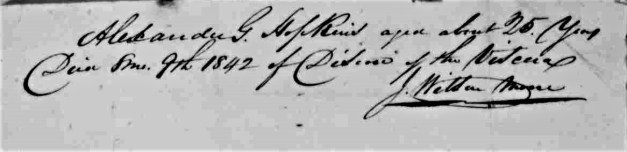 Alexander G. Hopkins aged about 25. Years
Died 8mo. 9th 1842 of Disease of the Viscera
J. Wilson Moore